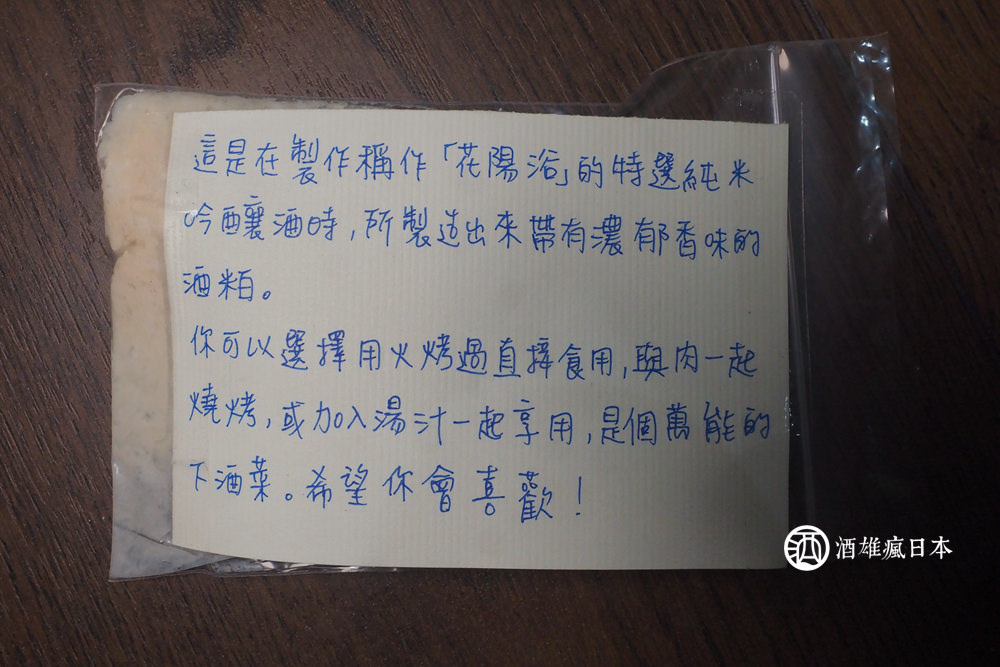 這是在製作稱作「花陽浴」的特選純米
吟釀酒時,所製造出來帶有濃郁香味的
酒粕。
你可以選擇用火烤過直接食用,與肉一起
燒烤,或加入湯汁一起享用,是個萬能的
下酒菜。希望你會喜歡!
酒 酒雄瘋日本